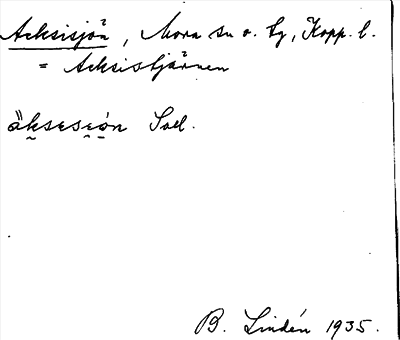 Acksisjön, Mora sn o. tg, Kopp. l.
= Acksistjärnen
äksesɛón Soll.
B. Lindén 1935.